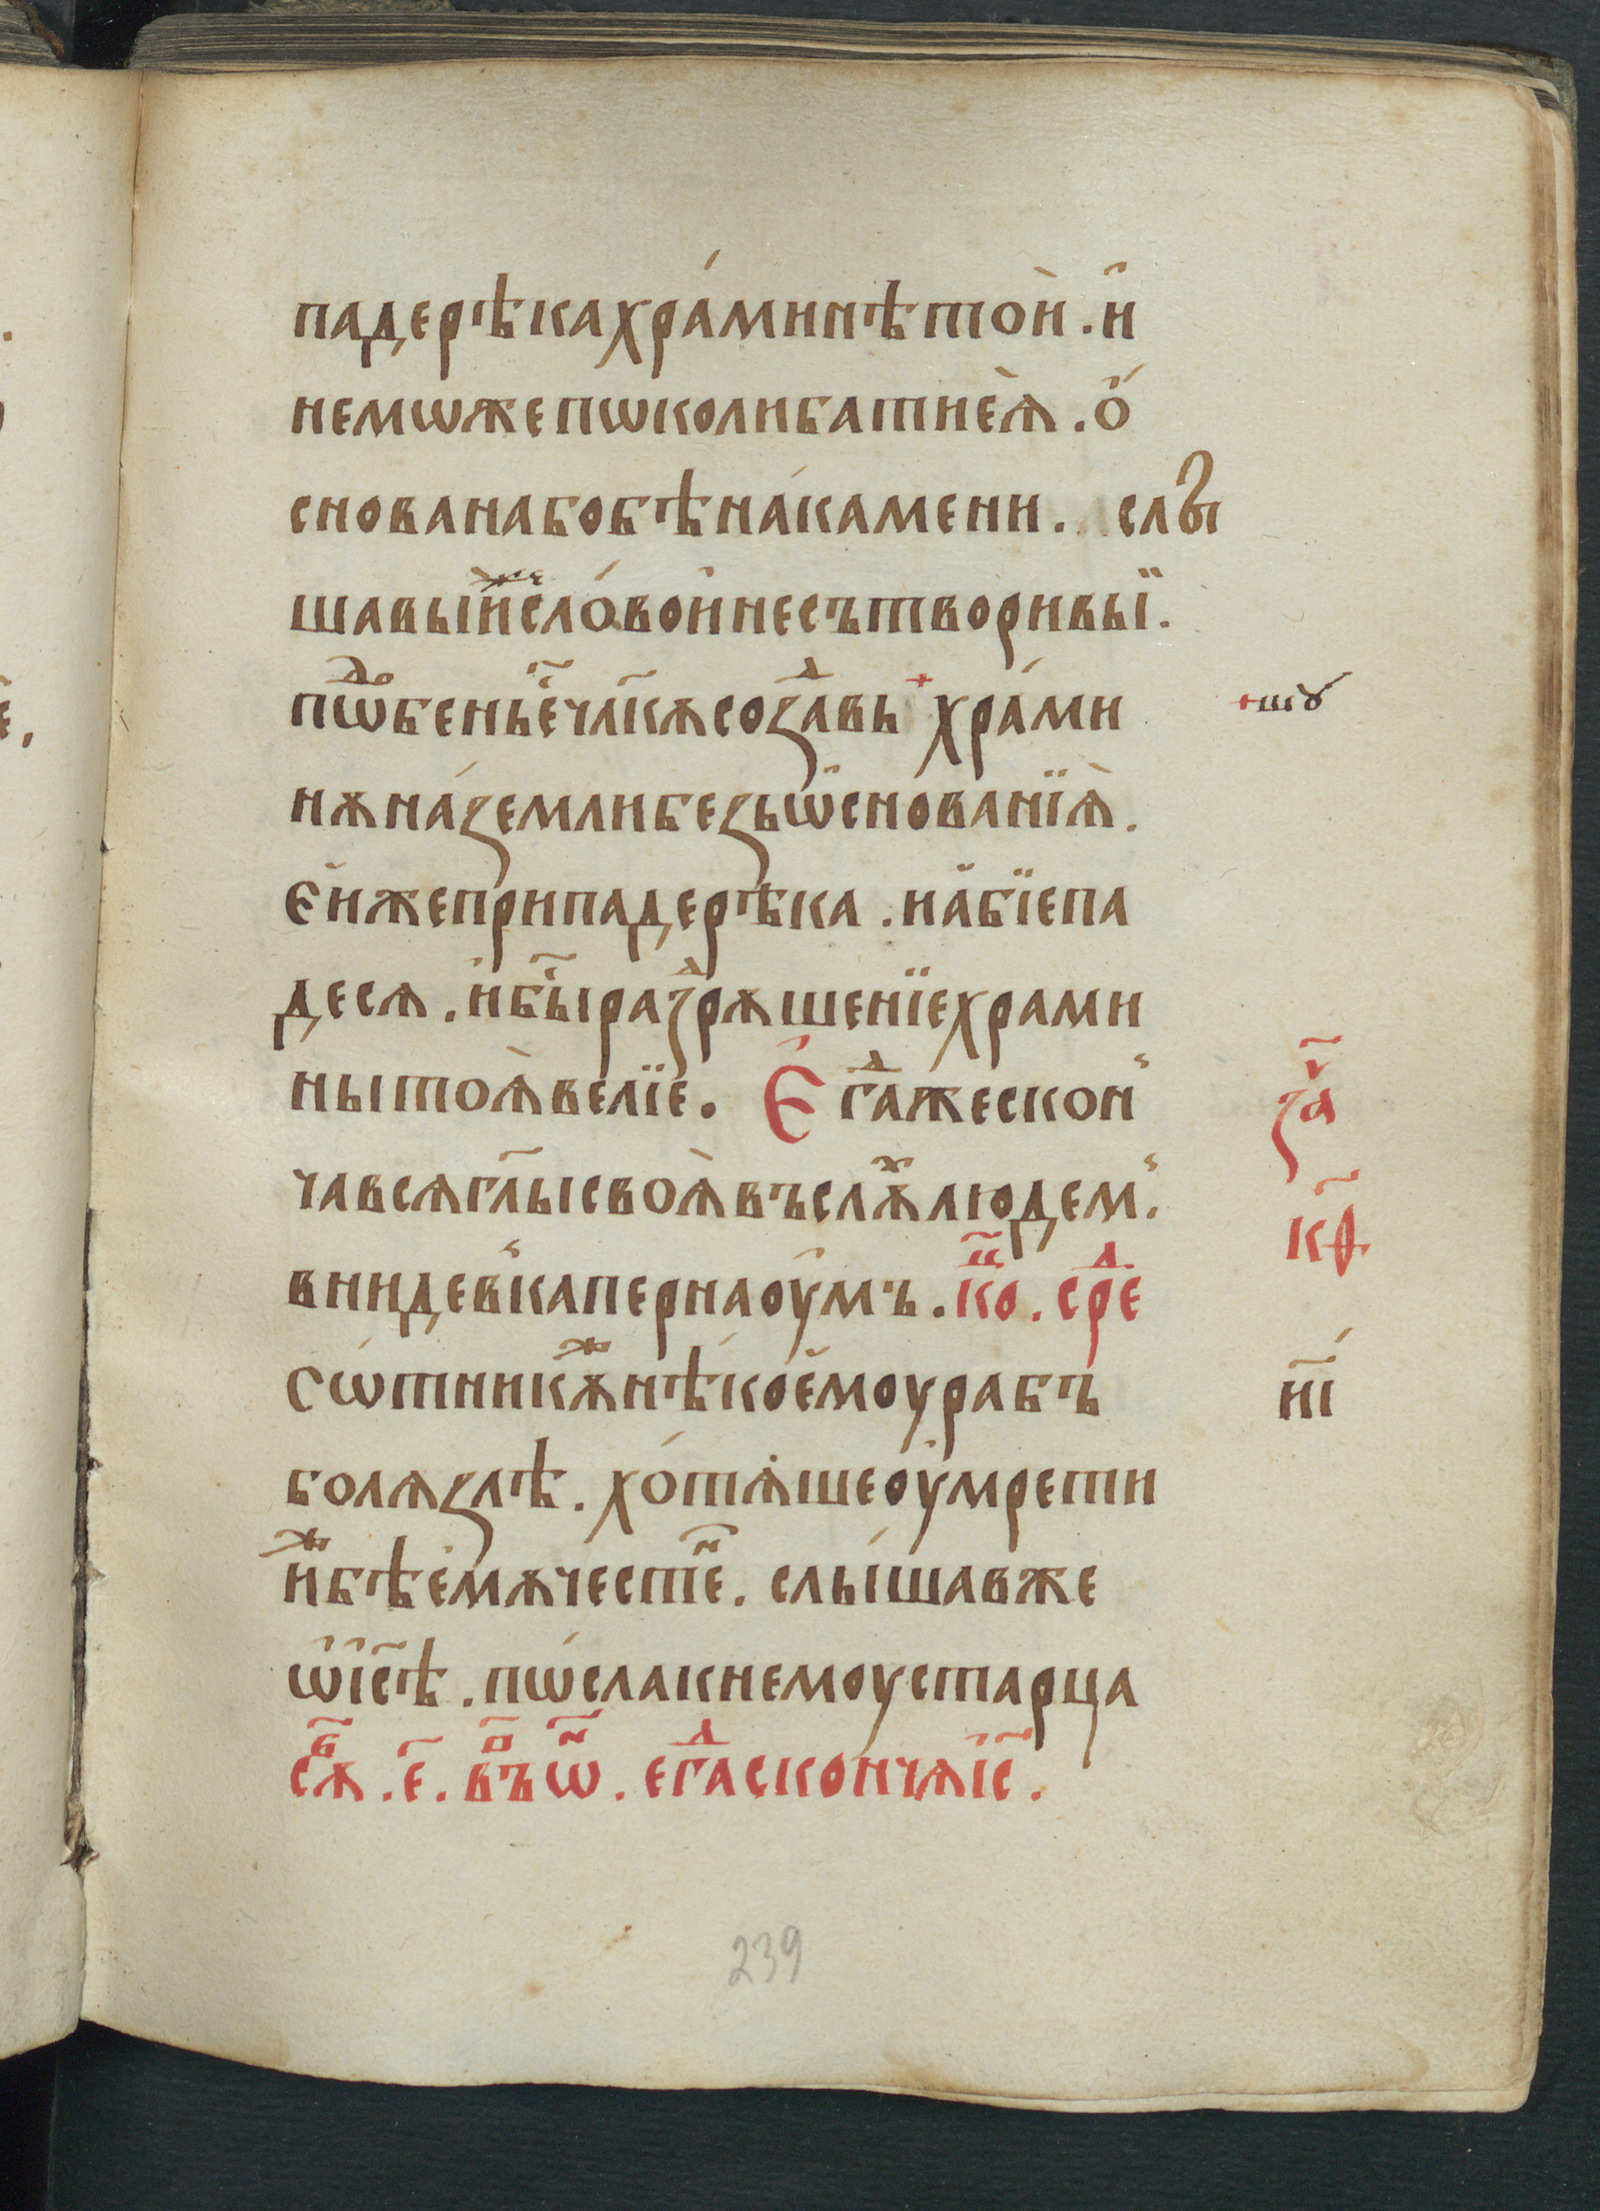 падерѣкахра́минѣтоѝ . и҆
немѡжепѡколибатиеѧ̀ . о҆́
снованабобѣна́камени . слы
шавыи҆̀же сло́вои҆несътворивыї .
пѡⷣ҇обенъе҆͂чл҃кѫсозⷣавъ + хра́ми
+ шꙋ
нѫна́землибезъѡ҆сно́ванїѧ̀ .
Єи҆жеприпадерѣка . иа҆бїепа
десѧ . и҆бы҃разⷣрѫшенїехрами
нытоѧ̀велїе . Є҆ гⷣажесконⸯ
за҃ч
чавсѧгл҃ысвоѧ̀въслѫⷯлюдемⸯ .
к҃ѳ
внидевⸯкапернаоу҆мъ . кⷰ҇о . срⷣе
Сѡ́тникѫⷤнѣкое҆моурабъ
н҃і
болѧзлѣ . хо́тѧшеоу҆мрети
и҆ⷤбѣе҆мѫчестⷩ҇е . слы́шавже
ѡ҆і҆с҃ѣ . пѡ́слакнемоустарца
сѫⷠ҇ . є҃ . вⷪ҇ъѡⷩ҇ . егⷣаскончѧі҆с҃ .
239